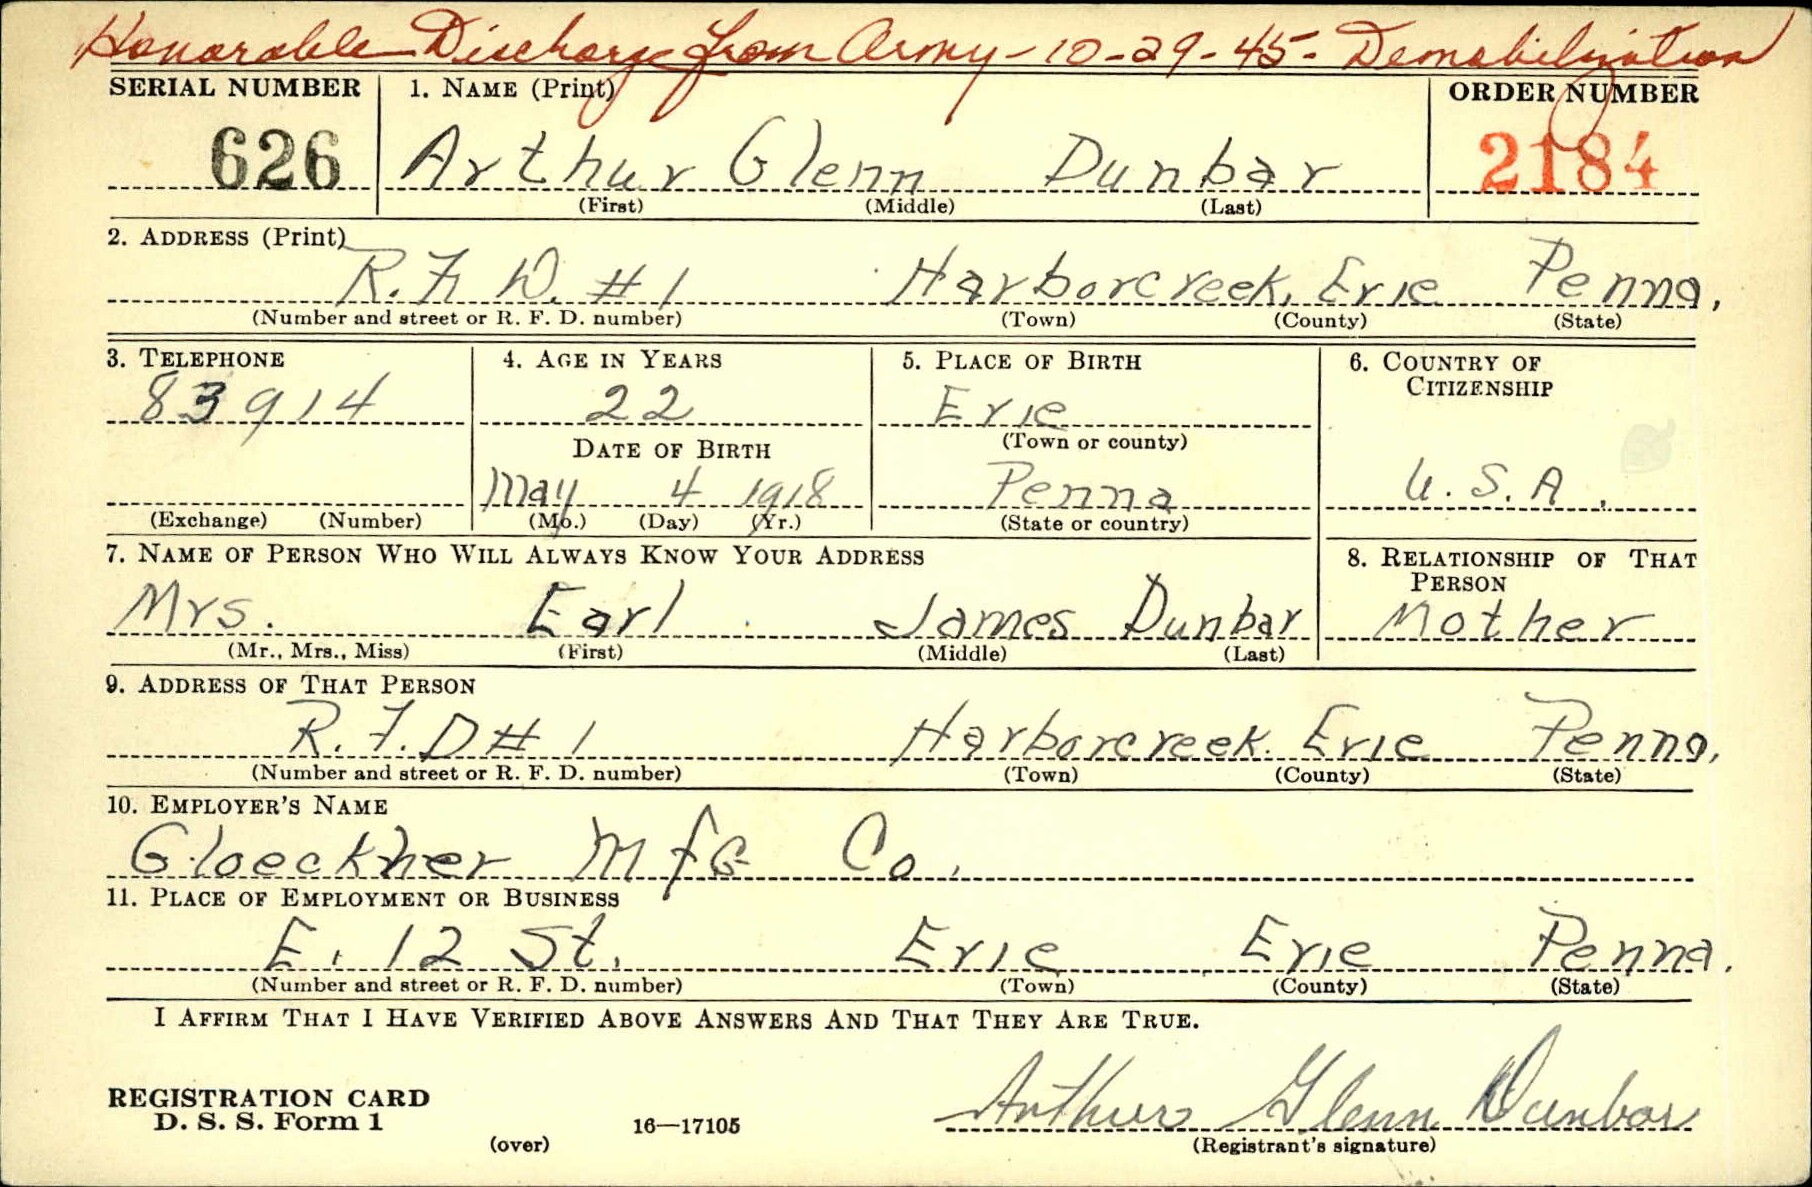 Honorable Discharge from Army - 10-29-45 - Demobilization
SERIAL NUMBER 1. NAME (Print) ORDER NUMBER
626 Arthur Glenn Dunbar 2184
(First) (Middle) (Last)
2. ADDRESS (Print)
R. F. D. # 1 Harborcreek, Erie Penna,
(Number and street or R. F. D. number) (Town) (County) (State)
3. TELEPHONE 4. AGE IN YEARS 5. PLACE OF BIRTH 6. COUNTRY OF CITIZENSHIP
83914 22 Erie
(Town or county)
DATE OF BIRTH
May 4 1918 Penna U. S. A.
(Exchange) (Number) (Mo.) (Day) (Yr.) (State or country)
7. NAME OF PERSON WHO WILL ALWAYS KNOW YOUR ADDRESS 8. RELATIONSHIP OF THAT PERSON
Mrs. Earl James Dunbar Mother
(Mr., Mrs., Miss) (First) (Middle) (Last)
9. ADDRESS OF THAT PERSON
R. F. D # 1 Harborcreek. Erie Penna,
(Number and street or R. F. D. number) (Town) (County) (State)
10. EMPLOYER'S NAME
Gloeckner MfG Co.
11. PLACE OF EMPLOYMENT OR BUSINESS
E. 12 St. Erie Erie Penna.
(Number and street or R. F. D. number) (Town) (County) (State)
I AFFIRM THAT I HAVE VERIFIED ABOVE ANSWERS AND THAT THEY ARE TRUE.
REGISTRATION CARD
D. S. S. Form 1 16—17105 Arthur Glenn Dunbar
(over) (Registrant's signature)